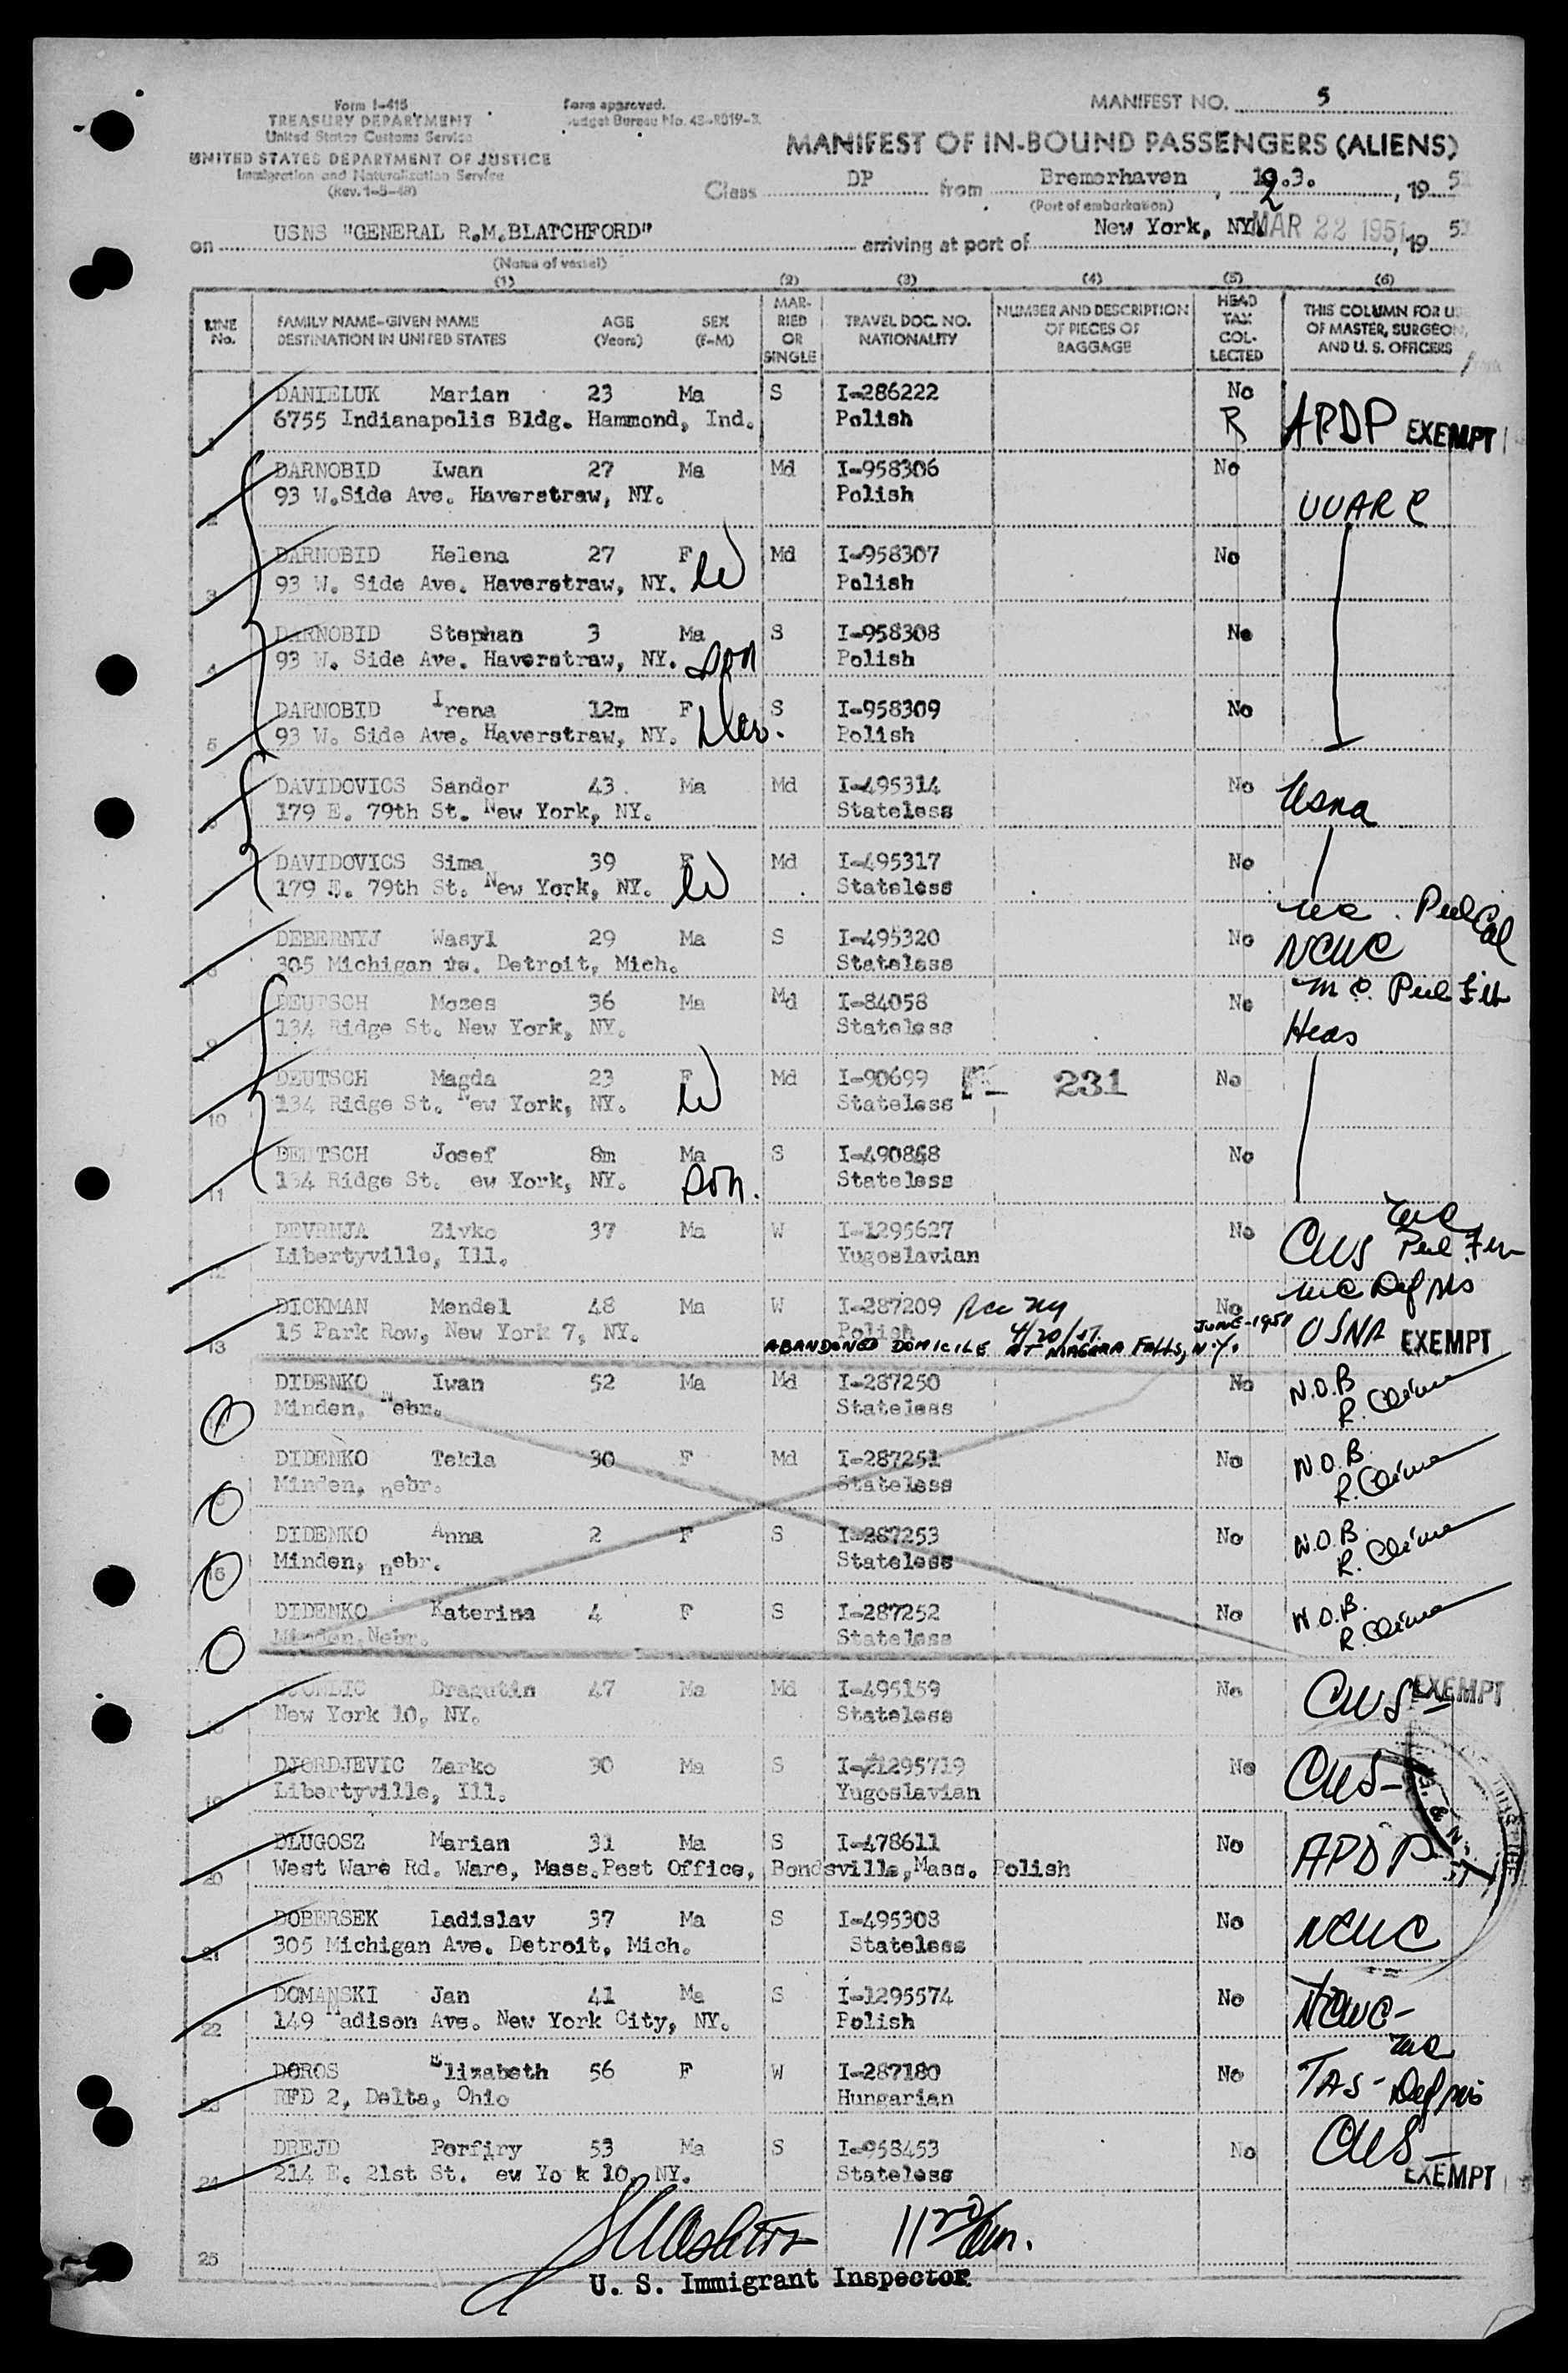 Form I-415
TREASURY DEPARTMENT
United States Customs Service
UNITED STATES DEPARTMENT OF JUSTICE
Immigration and Naturalization Service
(Rev. 1-5-48)
Form approved.
Budget Bureau No. 43-R019-3.
MANIFEST NO. 5
MANIFEST OF IN-BOUND PASSENGERS (ALIENS)
Class DP from Bremerhaven, 12.3., 19 51
(Port of embarkation)
on USNS "GENERAL R.M.BLATCHFORD" arriving at port of New York, NY. MAR 22 1951, 19 51
(Name of vessel)
(1) (2) (3) (4) (5) (6)
LINE No. FAMILY NAME-GIVEN NAME DESTINATION IN UNITED STATES AGE (Years) SEX (F-M) MARRIED OR SINGLE TRAVEL DOC. NO. NATIONALITY NUMBER AND DESCRIPTION OF PIECES OF BAGGAGE HEAD TAX COLLECTED THIS COLUMN FOR USE OF MASTER, SURGEON, AND U. S. OFFICERS
1 DANIELUK Marian 23 Ma S I-286222 No
6755 Indianapolis Bldg. Hammond, Ind. Polish R APDP EXEMPT
2 DARNOBID Iwan 27 Ma Md I-958306 No
93 W.Side Ave. Haverstraw, NY. Polish UUARC
3 DARNOBID Helena 27 F W Md I-958307 No
93 W. Side Ave. Haverstraw, NY. Polish
4 DARNOBID Stephan 3 Ma S I-958308 No
93 W. Side Ave. Haverstraw, NY. son Polish
5 DARNOBID Irena 12m F S I-958309 No
93 W. Side Ave. Haverstraw, NY. Polish
6 DAVIDOVICS Sandor 43 Ma Md I-495314 No
179 E. 79th St. New York, NY. Stateless usna
7 DAVIDOVICS Sima 39 F Md I-495317 No
179 E. 79th St. New York, NY. W Stateless
8 DEBERNYJ Wasyl 29 Ma S I-495320 No NCWC
305 Michigan Ave. Detroit, Mich. Stateless
9 DEUTSCH Mozes 36 Ma Md I-84058 No
134 Ridge St. New York, NY. Stateless Heas
10 DEUTSCH Magda 23 F Md I-90699 231 No
134 Ridge St. New York, NY. W Stateless
11 DEUTSCH Josef 8m Ma S I-490868 No
134 Ridge St. ew York, NY. son. Stateless
12 DEVRNJA Zivko 37 Ma W I-1295627 No CWS
Libertyville, Ill. Yugoslavian
13 DICKMAN Mendel 48 Ma W I-287209 No
15 Park Row, New York 7, NY. Polish USNA EXEMPT
ABANDONED DOMICILE AT NIAGARA FALLS, N.Y. JUNE-1951
DIDENKO Iwan 52 Ma Md I-287250 No N.O.B
Minden, Nebr. Stateless
DIDENKO Tekla 30 F Md I-287251 No N.O.B.
Minden, nebr. Stateless
16 DIDENKO Anna 2 F S I-287253 No N.O.B.
Minden, nebr. Stateless
DIDENKO Katerina 4 F S I-287252 No N.O.B.
Minden,Nebr. Stateless
18 Dragutin 47 Ma Md I-495159 No CWS- EXEMPT
New York 10, NY. Stateless
19 DJORDJEVIC Zarko 30 Ma S I-1295719 No CWS-
Libertyville, Ill. Yugoslavian
20 DLUGOSZ Marian 31 Ma S I-478611 No APDP
West Ware Rd. Ware, Mass.Post Office, Bondsville,Mass. Polish
21 DOBERSEK Ladislav 37 Ma S I-495308 No NCWC
305 Michigan Ave. Detroit, Mich. Stateless
22 DOMANSKI Jan 41 Ma S I-1295574 No NCWC-
149 Madison Ave. New York City, NY. Polish
23 DOROS Elizabeth 56 F W I-287180 No TAS-
RFD 2, Delta, Ohio Hungarian
24 DREJD Porfiry 53 Ma S I-958453 No CWS-
214 E. 21st St. ew Yo k 10, NY. Stateless EXEMPT
25
U. S. Immigrant Inspector